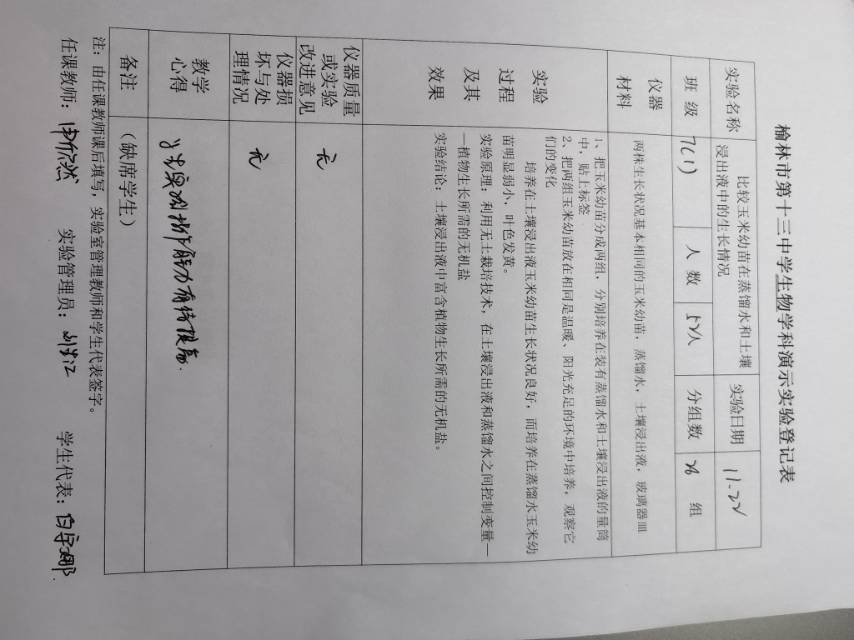 榆林市第十三中学生物学科演示实验登记表
实验名称
比较玉米幼苗在蒸馏水和土壤
浸出液中的生长情况
实验日期
11-22
班 级
7(1)
人 数
52人
分组数
26 组
仪器
材料
两株生长状况基本相同的玉米幼苗，蒸馏水，土壤浸出液，玻璃器皿
实验
过程
及其
效果
1、把玉米幼苗分成两组，分别培养在装有蒸馏水和土壤浸出液的量筒
中，贴上标签
2、把两组玉米幼苗放在相同是温暖、阳光充足的环境中培养，观察它
们的变化
培养在土壤浸出液玉米幼苗生长状况良好，而培养在蒸馏水玉米幼
苗明显弱小，叶色发黄。
实验原理：利用无土栽培技术，在土壤浸出液和蒸馏水之间控制变量—
—植物生长所需的无机盐
实验结论：土壤浸出液中富含植物生长所需的无机盐。
仪器质量
或实验
改进意见
无
仪器损
坏与处
理情况
无
教学
心得
实验操作能力有待提高.
备注
（缺席学生）
注：由任课教师课后填写，实验室管理教师和学生代表签字。
任课教师： 实验管理员： 学生代表：